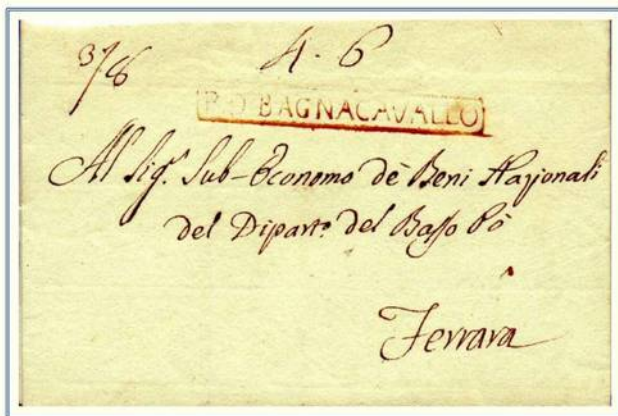 3/8 4. 6
P.D BAGNACAVALLO
Al Sig.r Sub-Economo dè Beni Nazionali
del Dipart.o del Basso Pò
Ferrara